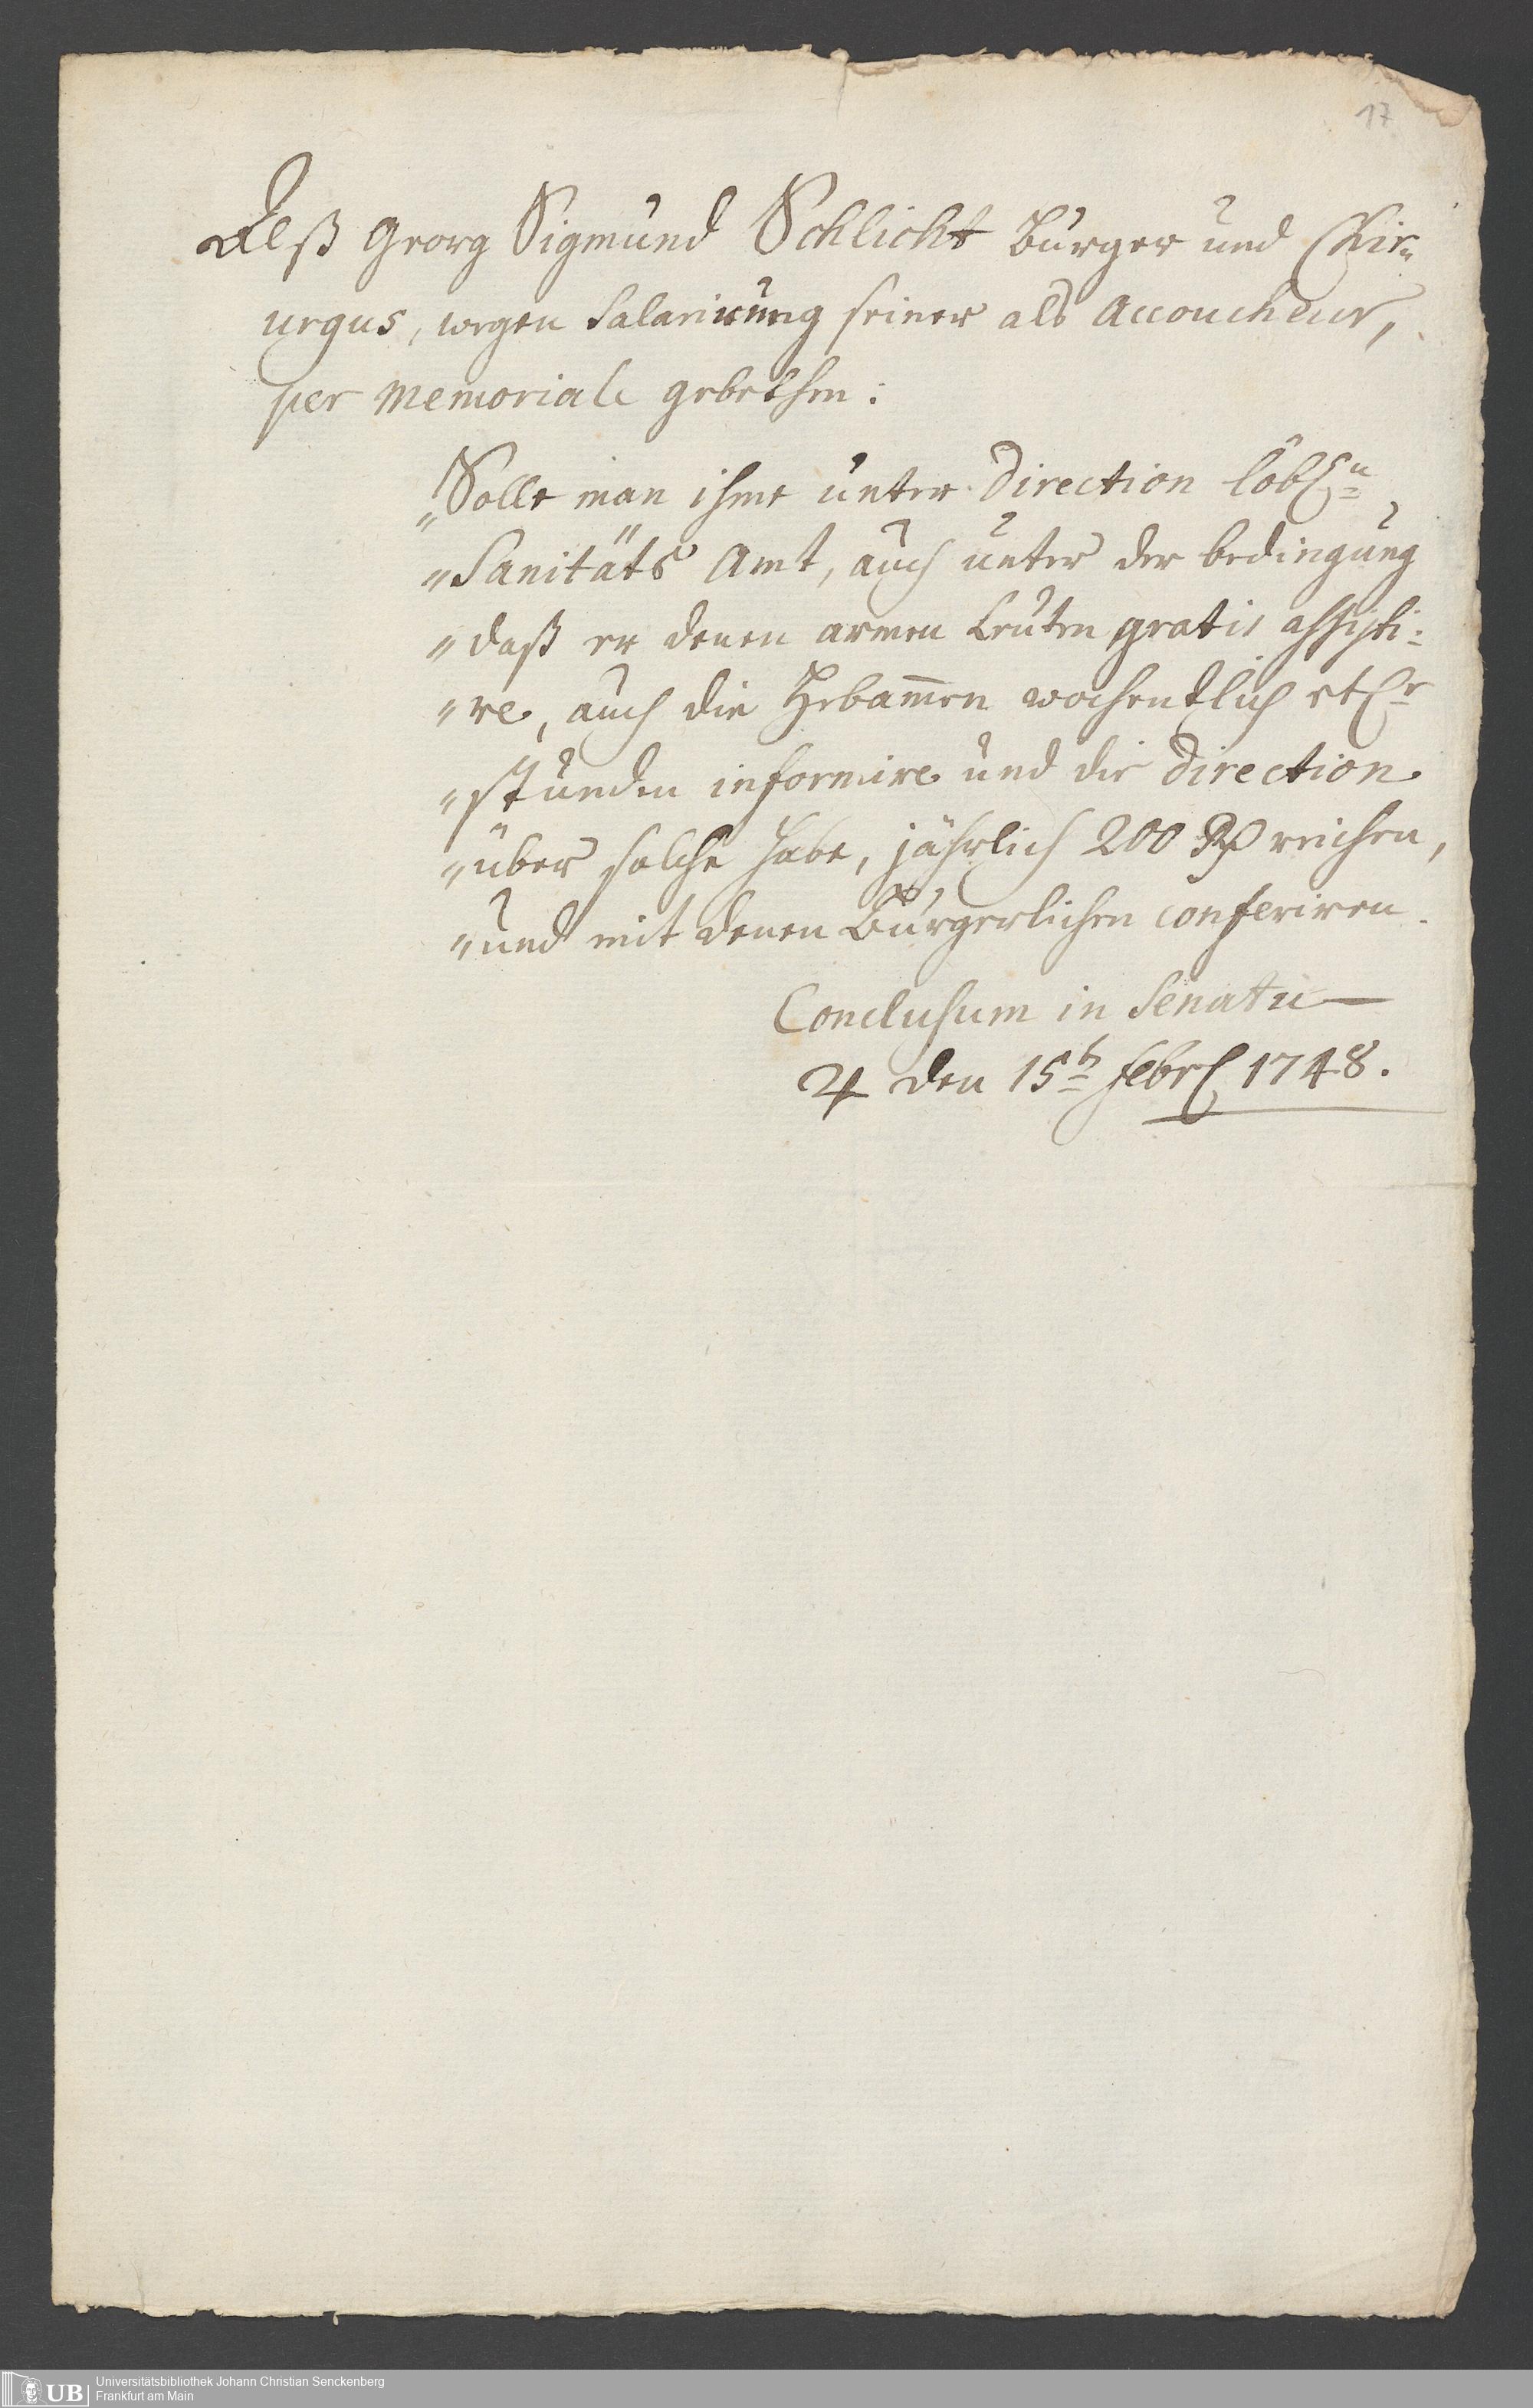 17
Alß Georg Sigmund Schlicht Burger und Chir=
urgus, wegen Salarirung seiner als Accoucheur,
per Memoriale gebethen:
„Solle man ihme unter Direction löbl.n
„Sanitäts Amt, auch unter der bedingung
„daß er denen armen Leuten gratis assisti=
„re, auch die Hebam̅en wochentlich etl.r
„stunden informire und die Direction
„über solche habe, jährlich 200 Rth reichen,
„und mit denen Bürgerlichen conferiren.
Conclusum in Senatu
♃ den 15t. Febr. 1748.
UB
Universitätsbibliothek Johann Christian Senckenberg
Frankfurt am Main